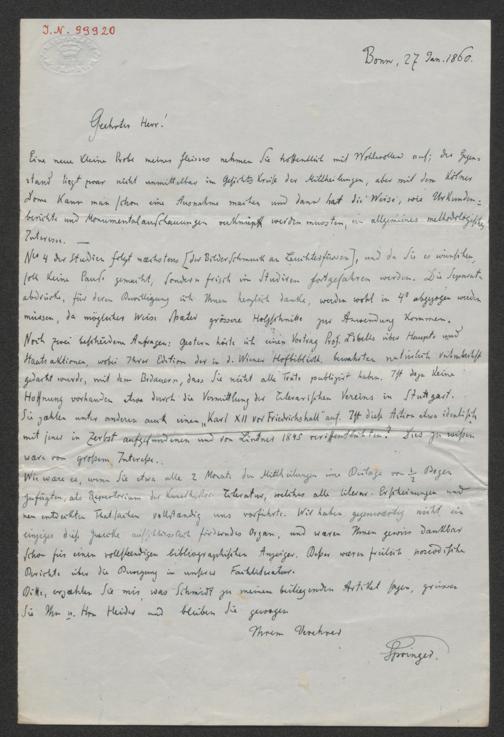 J.N. 99920
Bonn, 27 Jan. 1860.
Geehrter Herr!
Eine neue kleine Probe meines Fleisses nehmen Sie hoffentlich mit Wohlwollen auf; der Gegen-
stand liegt zwar nicht unmittelbar im Gesichtskreise der Mittheilungen, aber mit dem Kölner
Dome kann man schon eine Ausnahme machen und dann hat die Weise, wie Urkunden-
berichte und Monumentalanschauungen verknüpft werden müssten, ein allgemeines methodologisches
Interesse. —
No 4 der Studien folgt nächstens [der Bilderschmuck an Leuchterfüssen], und da Sie es wünschen,
soll keine Pause gemacht, sondern frisch im Studiren fortgefahren werden. Die Separat-
abdrücke, für deren Bewilligung ich Ihnen herzlich danke, werden wohl in 4° abgezogen werden
müssen, da möglicher Weise später grössere Holzschnitte zur Anwendung kommen.
Noch zwei bescheidene Anfragen: Gestern hörte ich einen Vortrag Prof. Löbells über Haupt- und
Staatsaktionen, wobei Ihrer Edition der in d. Wiener Hofbibliothek bewahrten natürlich rühmenhaft
gedacht wurde, mit dem Bedauern, dass Sie nicht alle Texte publizirt haben. Ist dazu keine
Hoffnung vorhanden etwa durch die Vermittlung des Literarischen Vereins in Stuttgart.
Sie zählen unter anderen auch einen „Karl XII vor Friedrichshall" auf. Ist diese Aktion etwa identisch
mit jener in Zerbst aufgefundenen und von Lindner 1845 veröffentlichten? Dies zu wissen
wäre von grossem Interesse.
Wie wäre es, wenn Sie etwa alle 2 Monate den Mittheilungen eine Beilage von ½ Bogen
zufügten, als Repertorium der Literatur, welches alle literar. Erscheinungen und
neu entdeckten Thatsachen vollständig uns vorführte. Wir haben gegenwärtig nicht ein
einziges diese Zwecke förderndes Organ, und wären Ihnen gewiss dankbar
schon für einen vollständigen bibliographischen Anzeiger. Besser wären freilich periodische
Berichte über die Bewegung in unserer Fachliteratur.
Bitte, erzählen Sie mir, was Schmidt zu meinem beiliegenden Artikel sagen, grüssen
Sie Ihn u. Hrn Heider und bleiben Sie gewogen
Ihrem Verehrer
Springer.